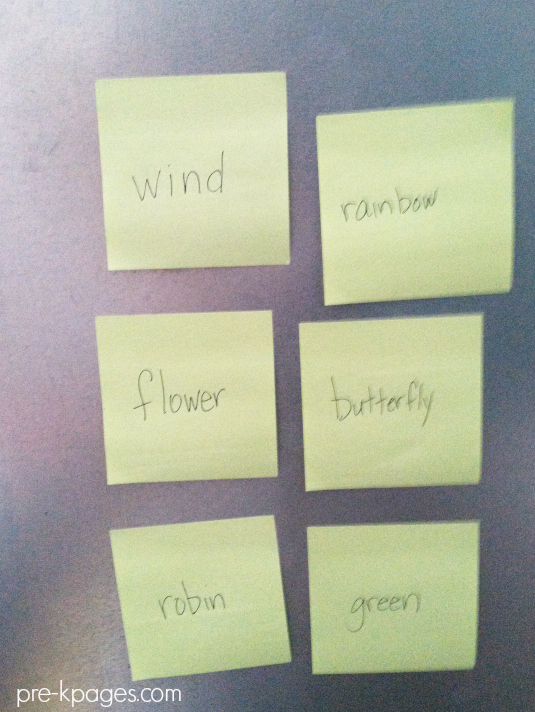 wind
rainbow
flower
butterfly
robin
green
pre-kpages.com